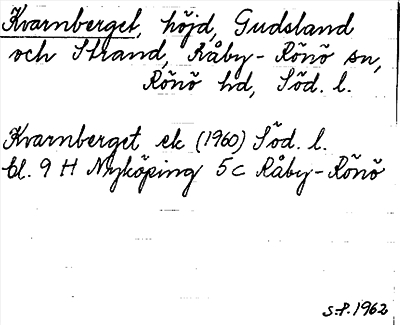 Kvarnberget, höjd, Gudsland
och Strand, Råby-Rönö sn,
Rönö hd, Söd. l.
Kvarnberget ek (1960) Söd. l.
bl. 9 H Nyköping 5c Råby-Rönö
S.P. 1962